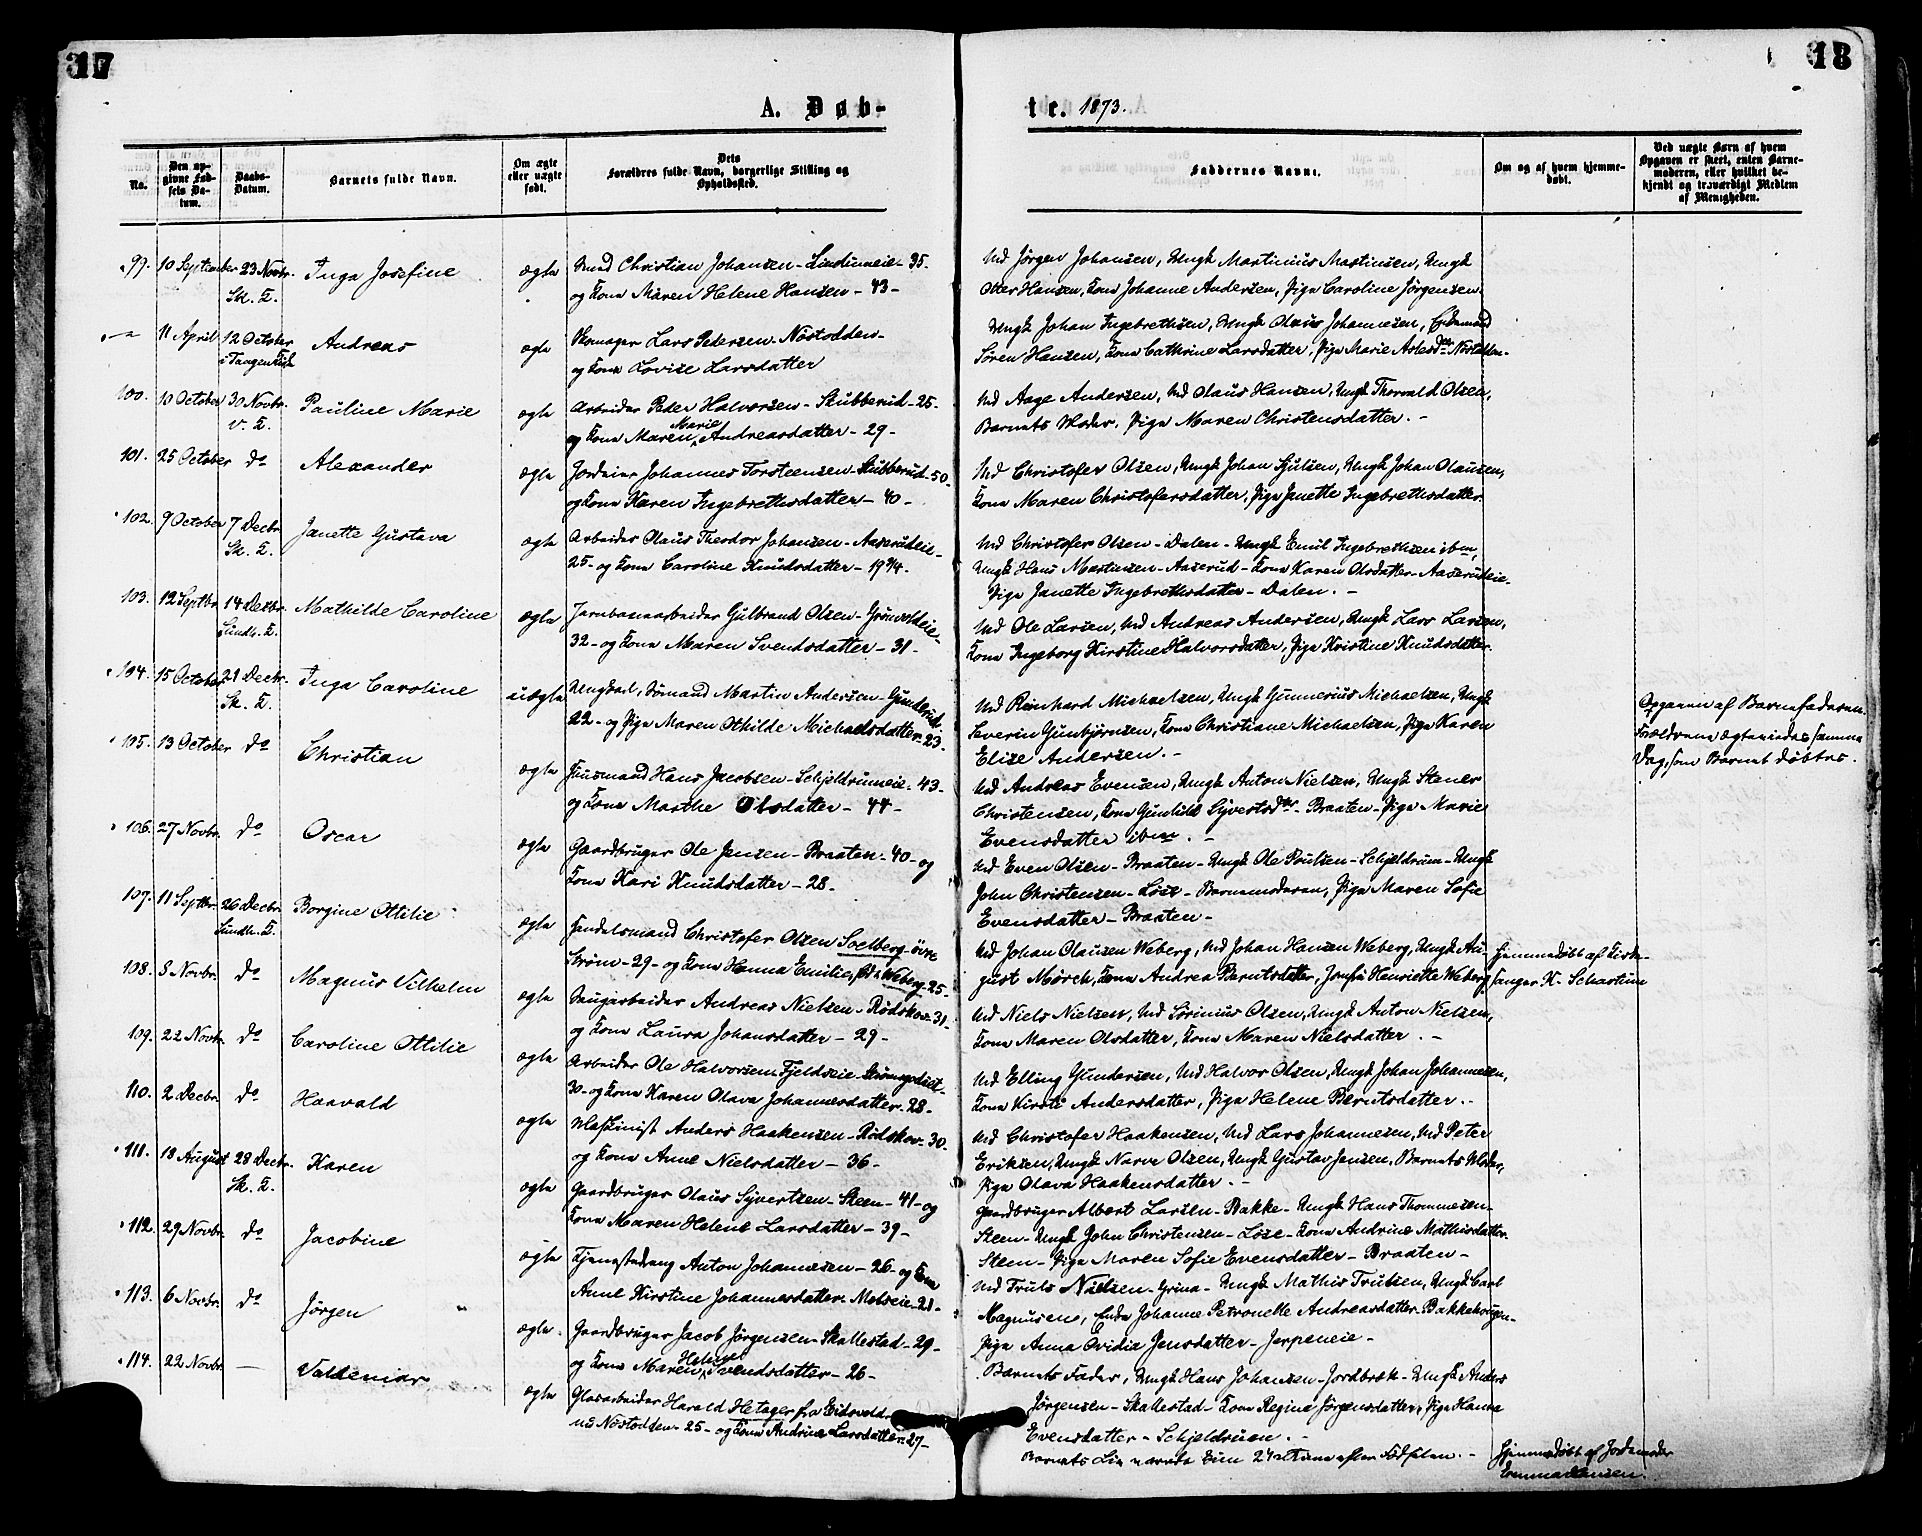 17
18
A. Døb-
te. 1873.
No.
Den op-
givne Fød-
sels Da-
tum.
Daabs-
Datum.
Barnets fulde Navn.
Om ægte
eller uægte
født.
Dets
Forældres fulde Navn, borgerlige Stilling og
Opholdssted.
Faddernes Navne.
Om og af hvem hjemme-
døbt.
Ved uægte Børn af hvem
Opgaven er skeet, enten Barne-
moderen, eller hvilket be-
kjendt og troværdigt Medlem
af Menigheden.
99. 10 September 23 Novbr. Sk. K. Inga Josefine ægte
Smed Christian Johansen - Lindumeie - 35 -
og Kone Maren Helene Hansen - 43 -
Md Jørgen Johansen, Ungk Martinius Martinsen, Ungk
Otter Hansen, Kone Johanne Andersen, Pige Caroline Jørgensen.
11 April 12 October i Tangen Kirk Andreas ægte
Skomager Lars Pedersen - Nøstodden -
og Kone Lovise Larsdatter
Ungk Johan Ingebrethsen, Ungk Olaus Johannesen,
Søren Hansen, Kone Cathrine Larsdatter, Pige Marie Aslesdtr Nøstodden -
100. 10 October 30 Novbr. V. K. Pauline Marie ægte
Arbeider Peder Halvorsen - Stubberud - 25 -
og Kone Maren Marie Andreasdatter - 29 -
Md Aage Andersen, Md Olaus Hansen, Ungk Thorvald Olsen,
Barnets Moder, Pige Maren Christensdatter. -
101. 25 October do Alexander ægte
Jordeier Johannes Torsteensen - Stubberud - 50 -
og Kone Karen Ingebrethsdatter - 40 -
Md Christofer Olsen, Ungk Johan Sjulsen, Ungk Johan Olausen,
Kone Maren Christofersdatter, Pige Janette Ingebrethsdatter.
102. 9 October 7 Decbr. Sk. K. Janette Gustava ægte
Arbeider Olaus Theodor Johansen - Aaserudeie -
25 - og Kone Caroline Knudsdatter - 19 3/4.
Md Christofer Olsen - Dalen - Ungk Emil Ingebrethsen ibm,
Ungk Hans Martinsen - Aaserud - Kone Karen Olsdatter - Aaserudeie -
Pige Janette Ingebrethsdatter - Dalen. -
103. 12 Septbr. 14 Decbr. Sundh. K. Mathilde Caroline ægte
Jernbanearbeider Gulbrand Olsen - Grønvoldeie -
32 - og Kone Maren Svendsdatter - 31 -
Md Ole Larsen, Md Andreas Andersen, Ungk Lars Larsen,
Kone Ingeborg Kirstine Halvorsdatter, Pige Kristine Knudsdatter.
104. 15 October 21 Decbr. Sk. K. Inga Caroline uægte
Ungkarl, Sømand Martin Andersen - Gunderud -
22 - og Pige Maren Othilde Michaelsdatter - 23 -
Md Reinhard Michaelsen, Ungk Gunnerius Michaelsen, Ungk
Severin Gunbjørnsen, Kone Christiane Michaelsen, Pige Karen
Elise Andersen. -
Opgaven af Barnefaderen.
Forældrene ægteviedes samme
Dag, som Barnet døbtes.
105. 13 October do Christian ægte
Huusmand Hans Jacobsen - Schjeldrumeie - 43 -
og Kone Marthe Olsdatter - 44 -
Md Andreas Evensen, Ungk Anton Nielsen, Ungk Stener
Christensen, Kone Gunhild Syvertsdtr - Braaten - Pige Marie
Evensdatter ibm. -
106. 27 Novbr. do Oscar ægte
Gaardbruger Ole Jensen - Braaten - 40 - og
Kone Kari Knudsdatter - 28 -
Md Even Olsen - Braaten - Ungk Ole Poulsen - Schjeldrum - Ungk
John Christensen - Løse - Barnemoderen, Pige Maren Sofie
Evensdatter - Braaten -
107. 11 Septbr. 26 Decbr. Sundh. K. Borgine Ottilie ægte
Handelsmand Christofer Olsen Soelberg - övre
Strøm - 29 - og Kone Hanna Emilie, født Weberg - 25 -
Md Johan Olausen Weberg, Md Johan Hansen Weberg, Ungk Au-
gust Mørch, Kone Andrea Berntsdatter, Jomfru Henriette Weberg.
Hjemmedøbt af Kirke-
sanger K. Schartum
108. 8 Novbr. do Magnus Vilhelm ægte
Saugarbeider Andreas Nielsen - Rødskov - 31 -
og Kone Laura Johansdatter - 29 -
Md Niels Nielsen, Md Sørinius Olsen, Ungk Anton Nielsen,
Kone Maren Olsdatter, Kone Maren Nielsdatter. -
109. 22 Novbr. do Caroline Ottilie ægte
Arbeider Ole Halvorsen - Fjeldseie - Strømsgodset -
30 - og Kone Karen Olava Johannesdatter - 28 -
Md Elling Gundersen, Md Halvor Olsen, Ungk Johan Johannesen,
Kone Kirsti Andersdatter, Pige Helene Berntsdatter. -
110. 2 Decbr. do Haavald ægte
Maskinist Anders Haakensen - Rødskov - 30 -
og Kone Anne Nielsdatter - 36 -
Md Christofer Haakensen, Md Lars Johannesen, Md Peter
Eriksen, Ungk Narve Olsen, Ungk Gustav Jensen, Barnets Moder,
Pige Olava Haakensdatter. -
111. 18 August 28 Decbr. Sk. K. Karen ægte
Gaardbruger Olaus Syvertsen - Steen - 41 - og
Kone Maren Helene Larsdatter - 39 -
Gaardbruger Albert Larsen - Bakke - Ungk Hans Thommesen -
Steen - Ungk John Christensen - Løse - Kone Andrine Mathisdatter -
Steen - Pige Maren Sofie Evensdatter - Braaten -
112. 29 Novbr. do Jacobine ægte
Tjenestedreng Anton Johannesen - 26 - og Kone
Anne Kirstine Johannesdatter - Melseie - 21 -
Md Truls Nielsen - Grina - Ungk Mathis Trulsen, Ungk Carl
Magnusen, Enke Johanne Petronelle Andreasdatter - Bakkehougen -
Pige Anna Ovidia Jensdatter - Jerpeneie -
113. 6 Novbr. do Jørgen ægte.
Gaardbruger Jacob Jørgensen - Skallestad - 29 -
og Kone Maren Helene Svendsdatter - 26 -
Barnets Fader, Ungk Hans Johansen - Jordbræk - Ungk Anders
Jørgensen - Skallestad - Kone Regine Jørgensdatter, Pige Hanna
Evensdatter - Schjeldruen. -
114. 22 Novbr. — Valdemar ægte
Glasarbeider Harald Hetager fra Eidsvold
nu Nøstodden - 25 - og Kone Andrine Larsdatter - 27 -
Barnets Liv varede kun 24 Timer efter Fødselen. -
Hjemmedøbt af Jordemoder
Emma Jensen.